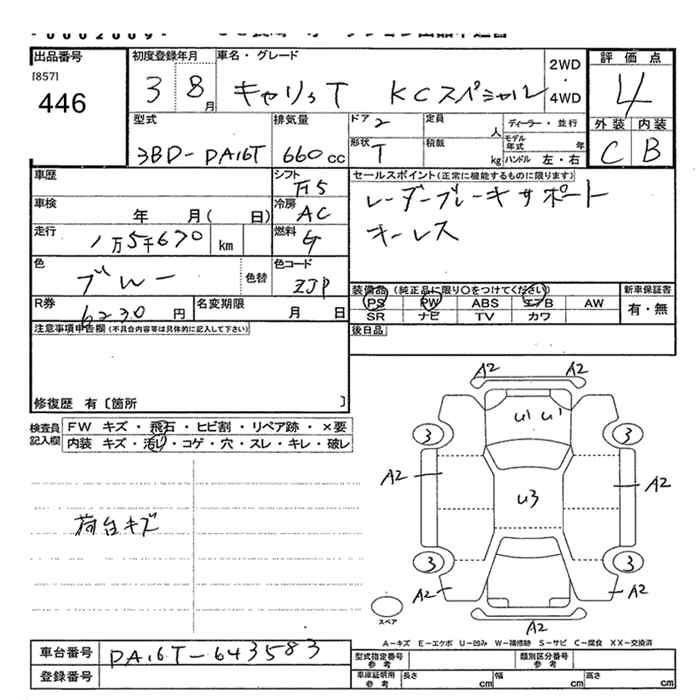 出品番号
[857]
446
初度登録年月
3 8月
車名・グレード
キャリィT KCスペシャル
2WD
・
4WD
評価点
4
外装 内装
C B
型式
3BD-DA16T
排気量
660cc
ドア 2
形状 T
定員 人
積載 kg
ディーラー・並行
モデル年式 年
ハンドル 左・右
車歴
シフト F5
車検 年 月( 日)
冷房 AC
走行 1万5千670 km
燃料 G
色 ブルー 色替
色コード ZJP
R券 6230 円
名変期限 月 日
セールスポイント(正常に機能するものに限ります)
レーダーブレーキサポート
キーレス
装備品 (純正品に限り○をつけてください)
PS PW ABS エアB AW
SR ナビ TV カワ
新車保証書
有・無
後日品
注意事項申告欄(不具合内容等は具体的に記入して下さい)
修復歴 有 [箇所 ]
検査員記入欄
FW キズ・飛石・ヒビ割・リペア跡・×要
内装 キズ・汚れ・コゲ・穴・スレ・キレ・破レ
荷台キズ
A2 A2
U1 U1
3 3
A2 A2
U3
3 3
A2 A2
A2
スペア
A-キズ E-エクボ U-凹み W-補修跡 S-サビ C-腐食 XX-交換済
車台番号 DA16T-643583
登録番号
型式指定番号 参考
類別区分番号 参考
車庫証明用 参考
長さ cm 幅 cm 高さ cm